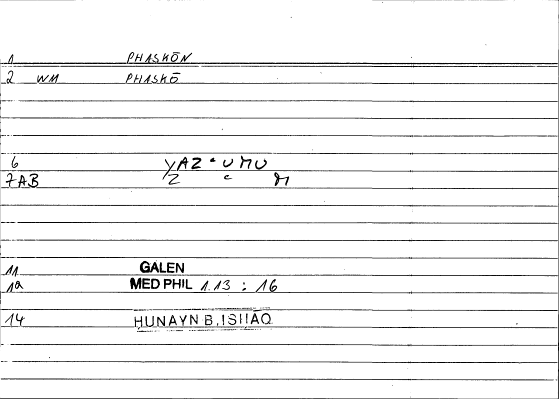 1 PHASKŌN
2 WM PHASKŌ
6 YAZʿUMU
7AB Z ʿ M
11 GALEN
1a MED PHIL 1.13 : 16
14 HUNAYN B.ISHAQ